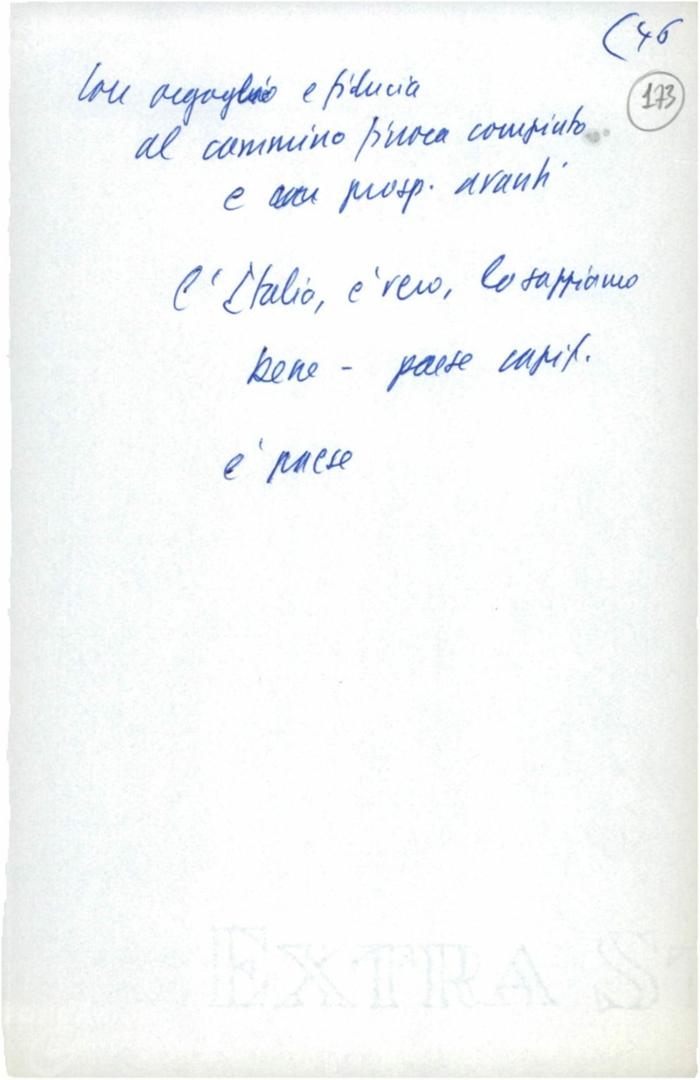 (46
173
Con orgoglio e fiducia
al cammino finora compiuto
e con prosp. avanti
L'Italia, è vero, lo sappiamo
bene - paese capit.
è paese
EXTRA S